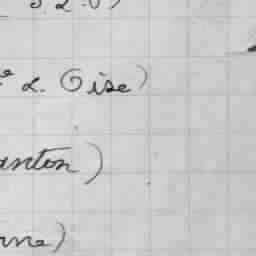 e L. Oise)
anton)
rne)